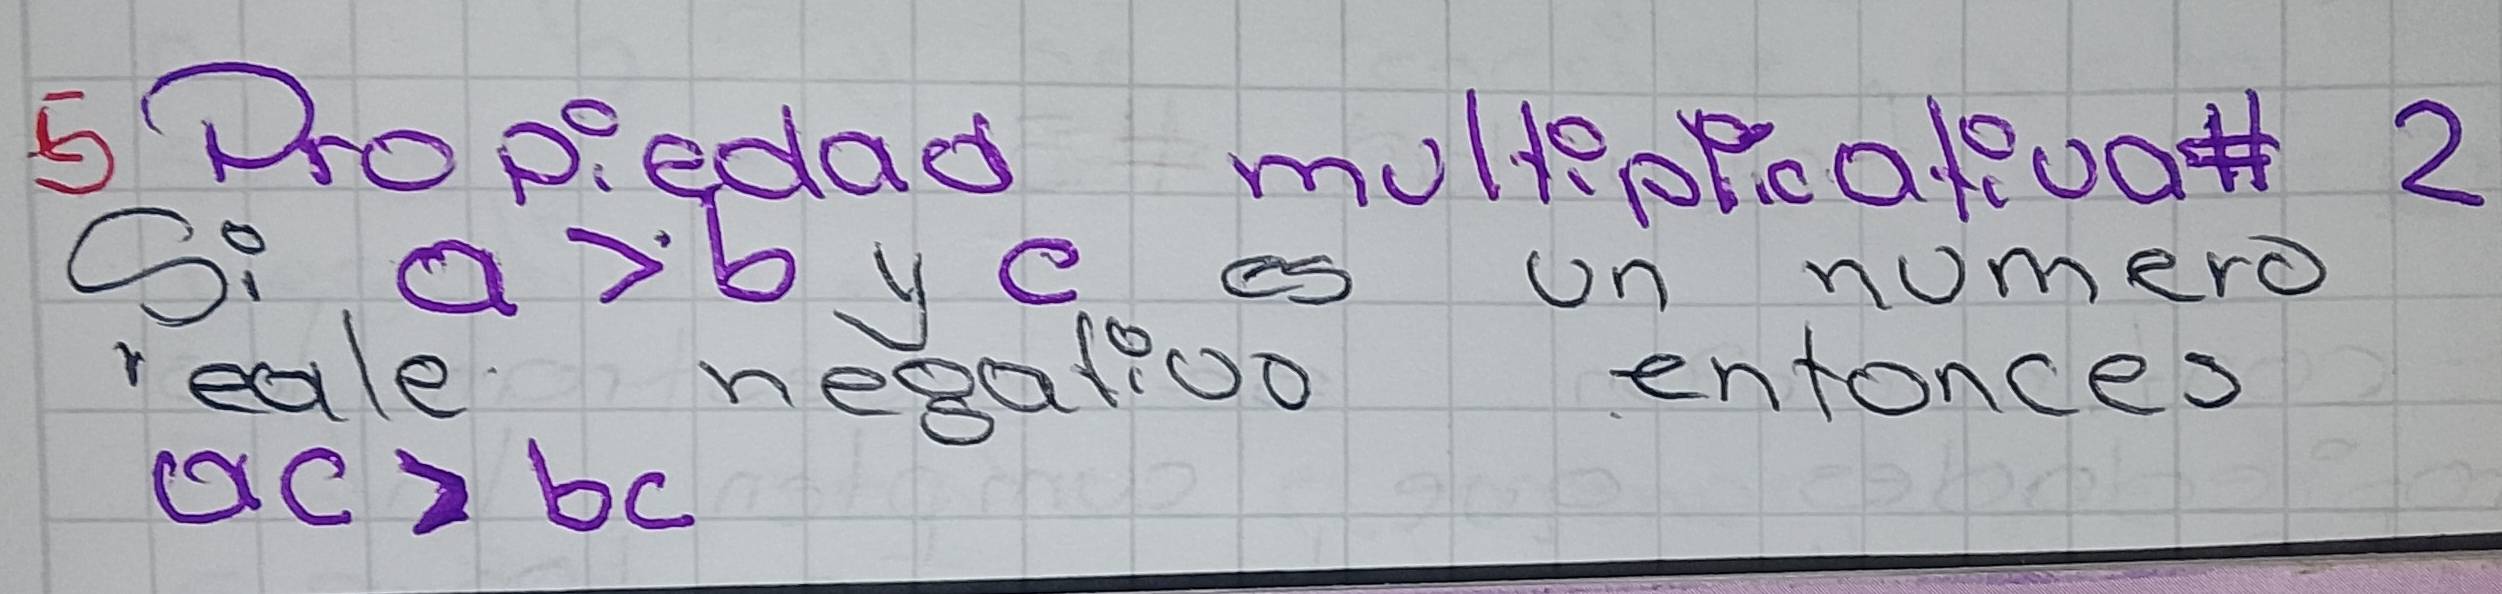 5 Propiedad multiplicativa # 2
Si a > b y c es un numero
reale negativo entonces
ac > bc